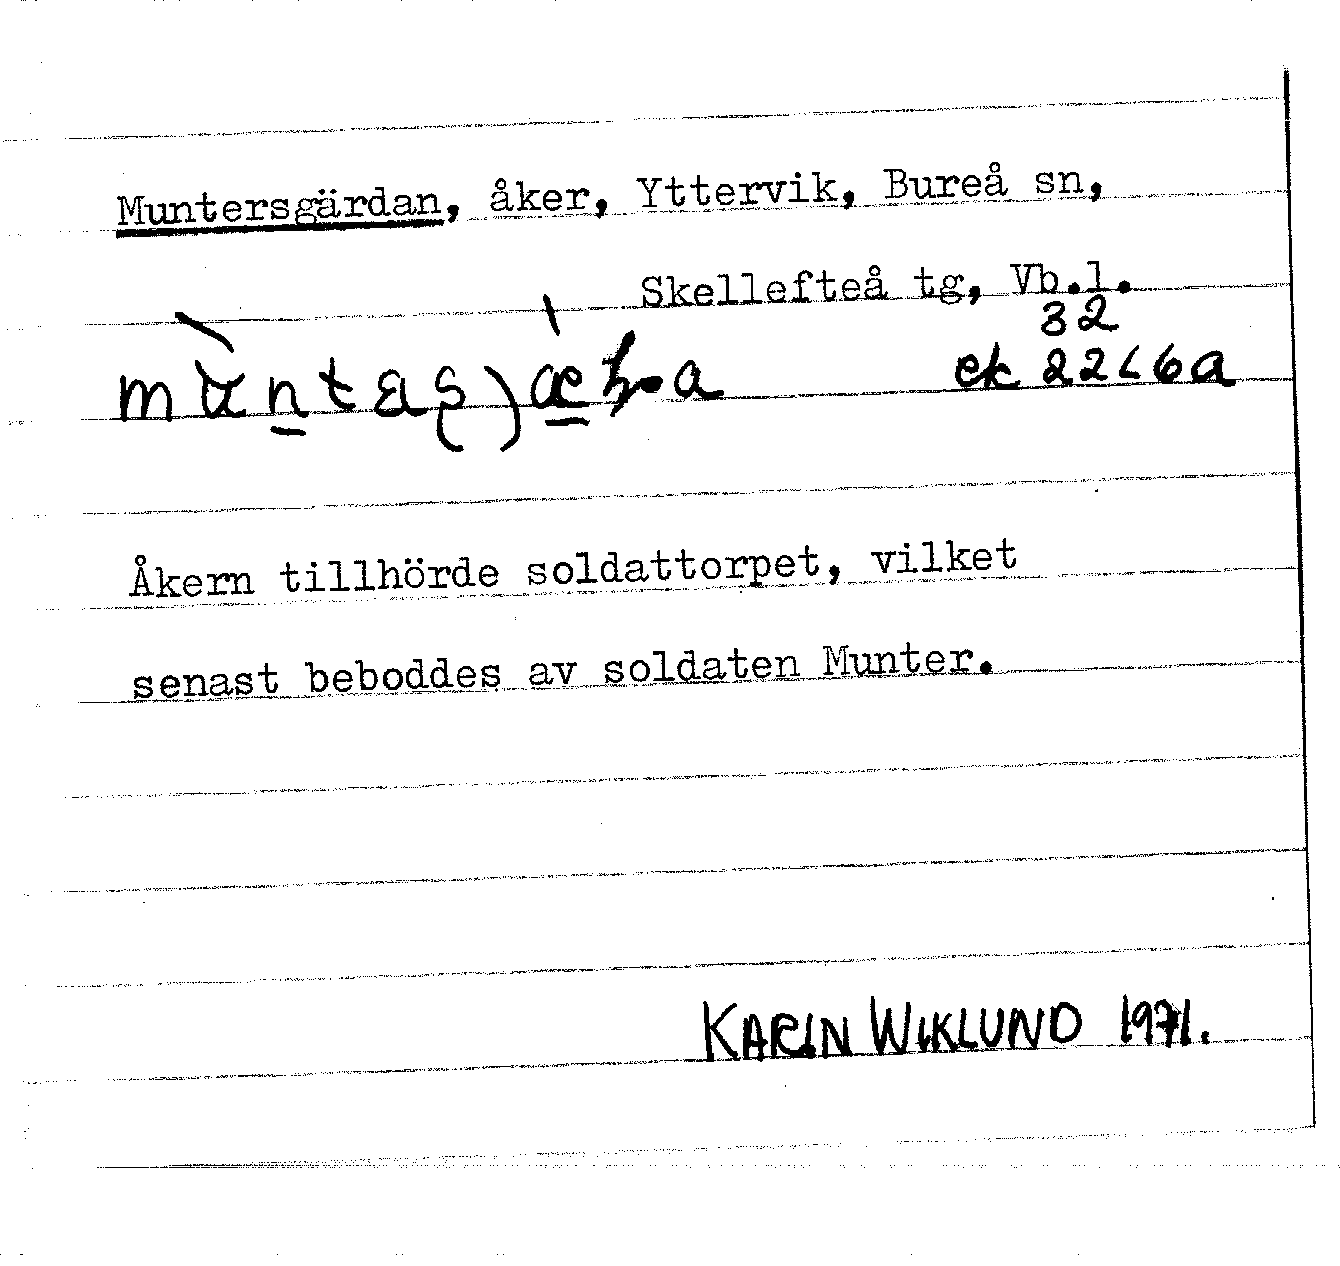 Muntersgärdan, åker, Yttervik, Bureå sn,
Skellefteå tg, Vb.l.
32
ek 22L6a
Åkern tillhörde soldattorpet, vilket
senast beboddes av soldaten Munter.
KARIN WIKLUND 1971.